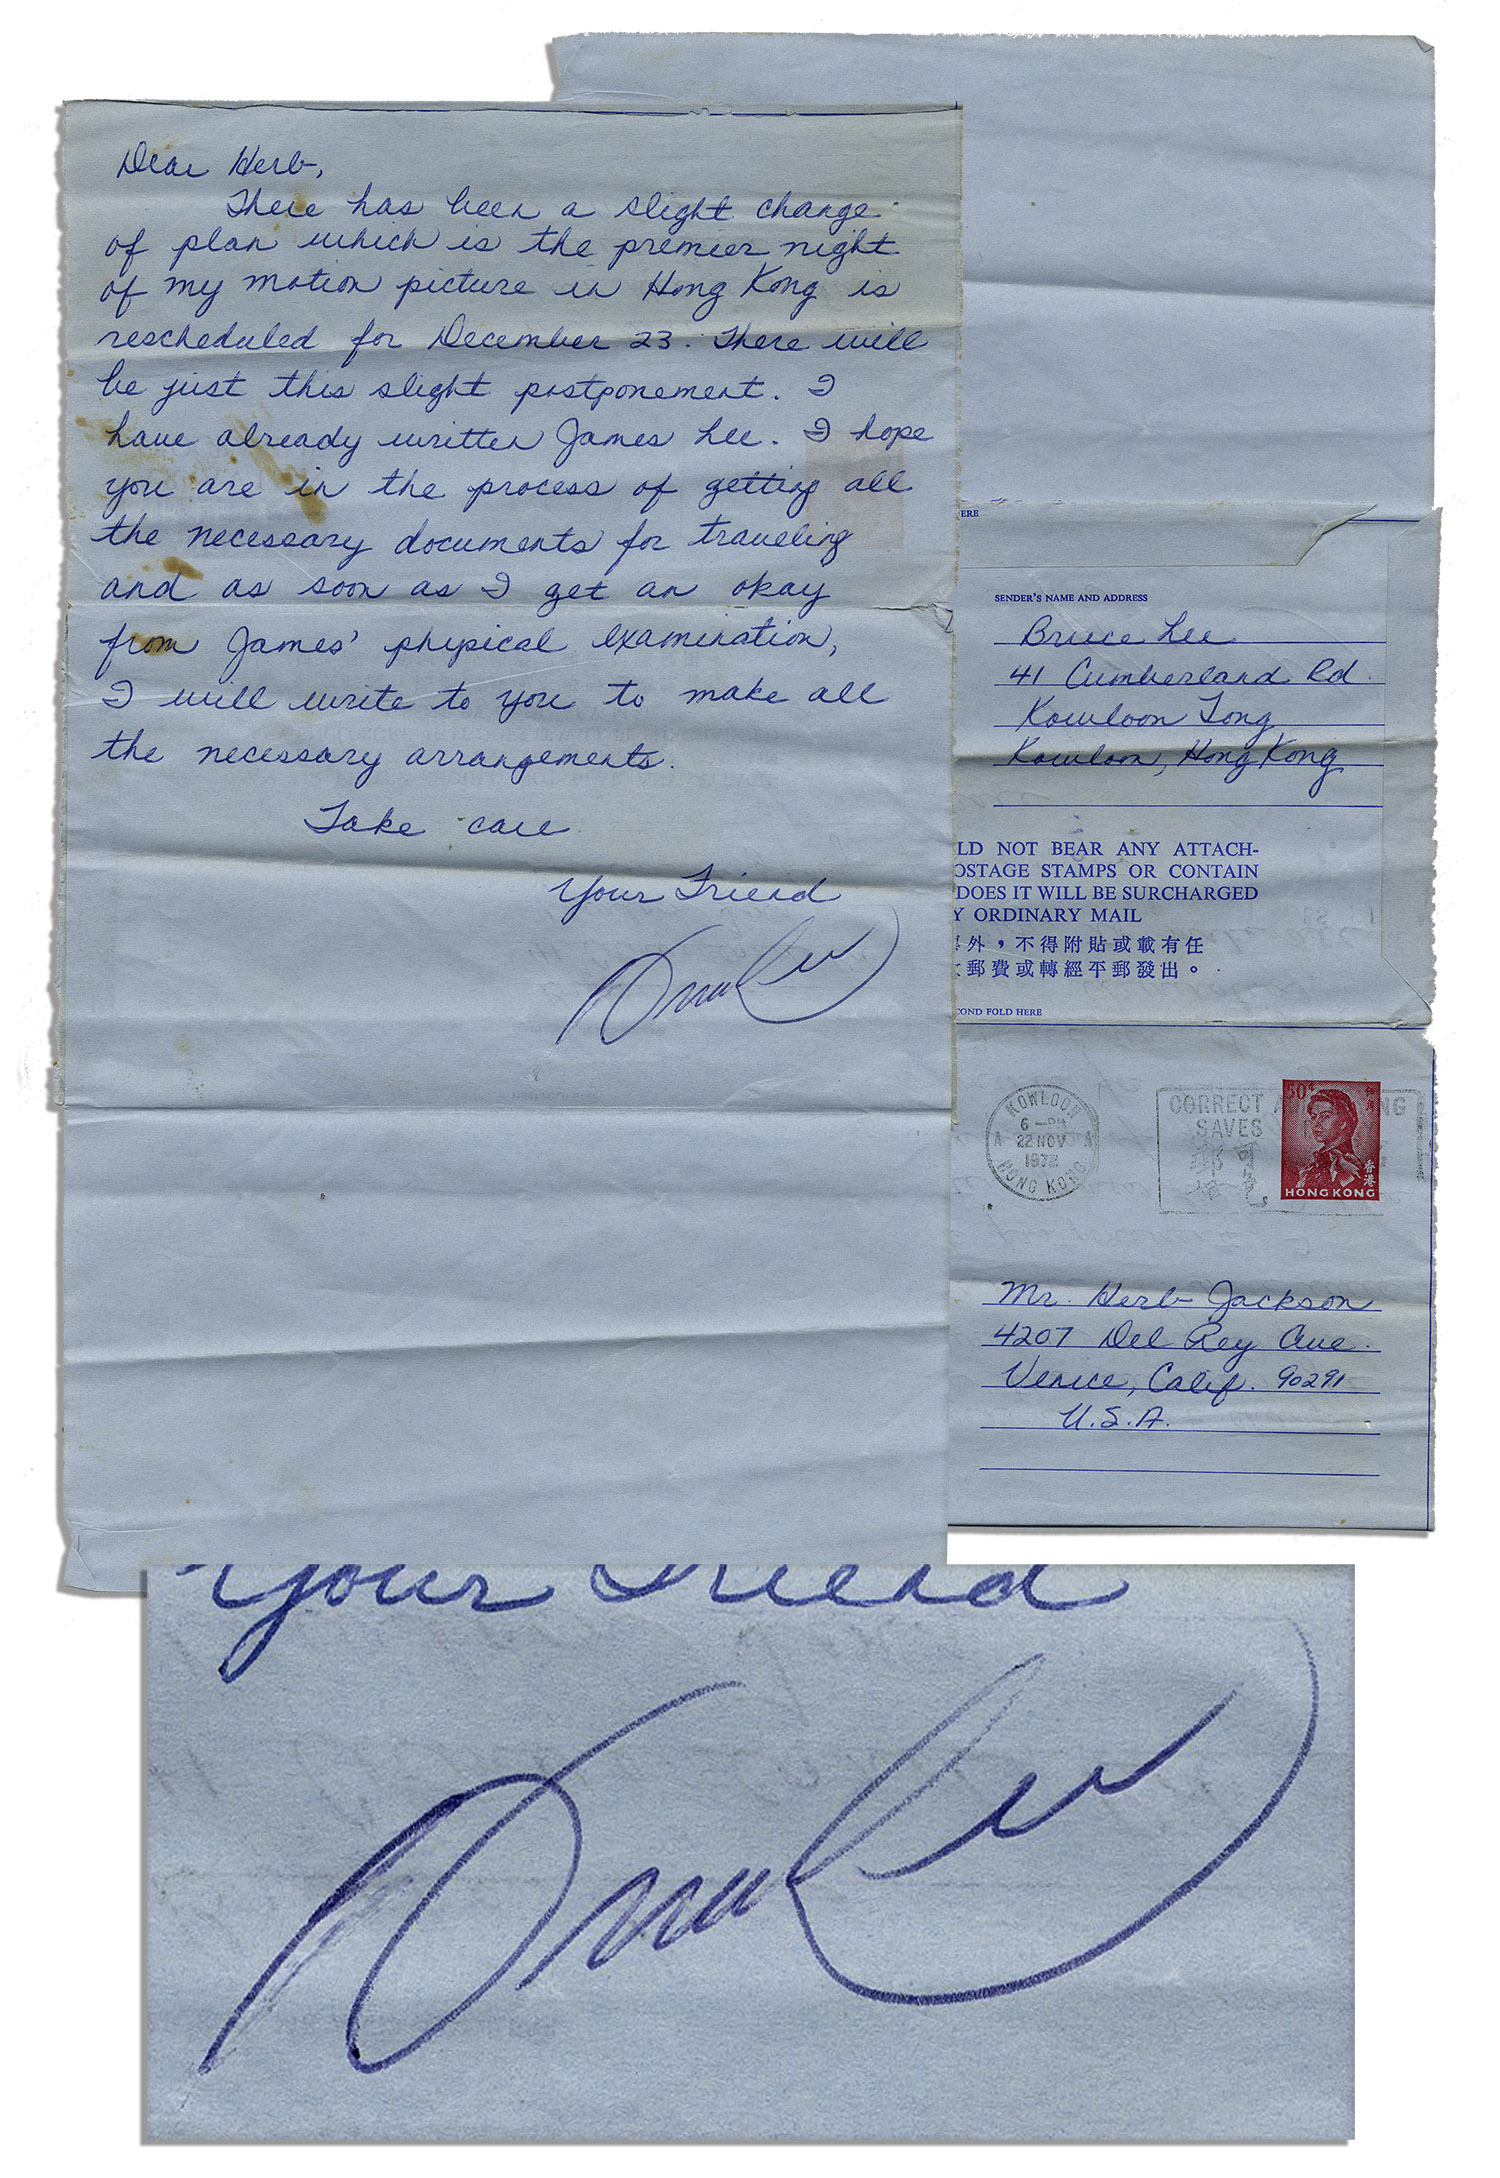 Dear Herb,
There has been a slight change
of plan which is the premier night
of my motion picture in Hong Kong is
rescheduled for December 23. There will
be just this slight postponement. I
have already written James Lee. I hope
you are in the process of getting all
the necessary documents for traveling
and as soon as I get an okay
from James' phypical examination,
I will write to you to make all
the necessary arrangements.
Take care
Your Friend
Bruce Lee
ERE
SENDER'S NAME AND ADDRESS
Bruce Lee
41 Cumberland Rd.
Kowloon Tong
Kowloon, Hong Kong
LD NOT BEAR ANY ATTACH-
OSTAGE STAMPS OR CONTAIN
DOES IT WILL BE SURCHARGED
Y ORDINARY MAIL
外，不得附貼或載有任
郵費或轉經平郵發出。
COND FOLD HERE
KOWLOON
6 -PM
A 22 NOV A
1972
HONG KONG
CORRECT A NG
SAVES
郵
50¢
香港
HONG KONG
Mr. Herb Jackson
4207 Del Rey Ave.
Venice, Calif. 90291
U.S.A.
Your Friend
Bruce Lee